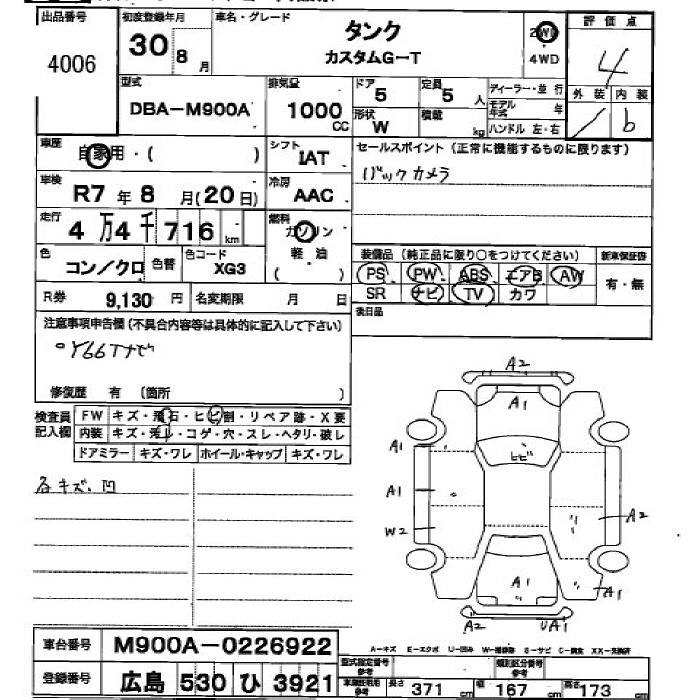 出品番号
4006
初度登録年月
30 8 月
車名・グレード
タンク
カスタムG-T
2WD
4WD
評価点
4
外装 内装
b
型式
DBA-M900A
排気量
1000 CC
ドア
5
定員
5 人
形状
W
積載
kg
ディーラー・並行
モデル年式 年
ハンドル 左・右
車歴
自家用・( )
シフト
IAT
セールスポイント(正常に機能するものに限ります)
バックカメラ
車検
R7 年 8 月(20日)
冷房
AAC
走行
4万4千716 km
燃料
ガソリン
軽・油
( )
色
コン/クロ
色替
色コード
XG3
装備品(純正品に限り○をつけてください)
新車保証書
PS PW ABS エアB AW
SR ナビ TV カワ
有・無
R券 9,130 円
名変期限 月 日
後日品
注意事項申告欄(不具合内容等は具体的に記入して下さい)
Y66Tナビ
修復歴 有 (箇所 )
検査員記入欄
FW キズ・飛石・ヒビ割・リペア跡・X要
内装 キズ・汚れ・コゲ・穴・スレ・ヘタリ・破レ
ドアミラー キズ・ワレ ホイール・キャップ キズ・ワレ
各キズ・凹
A2
A1
A1
ヒビ
A1
W2
A2
A1
A1
A2
UA1
車台番号
M900A-0226922
登録番号
広島 530 ひ 3921
A-キズ E-エクボ U-凹み W-補修跡 S-サビ C-腐食 XX-交換済
型式指定番号参考
類別区分番号参考
車検証記載用参考
長さ 371 cm
幅 167 cm
高さ 173 cm